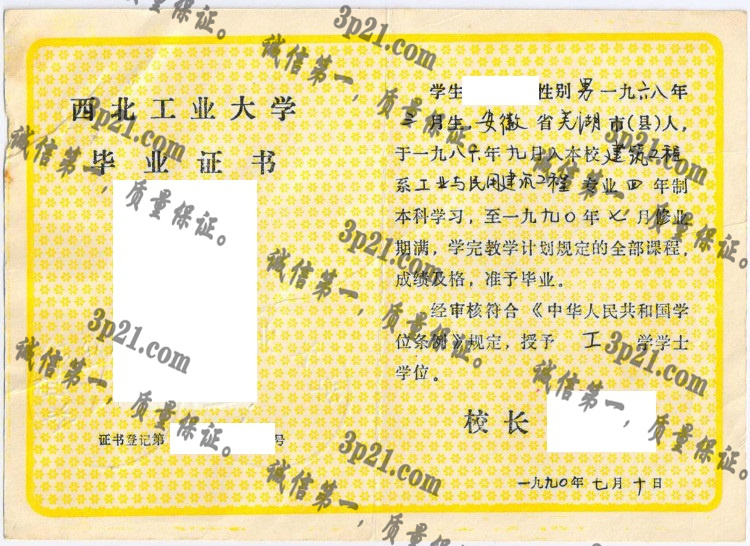 西北工业大学
毕业证书
证书登记第
号
学生 性别男一九六八年
三月生，安徽省芜湖市(县)人，
于一九八 年九月入本校建筑工程
系工业与民用建筑工程专业四年制
本科学习，至一九九〇年七月修业
期满，学完教学计划规定的全部课程，
成绩及格，准予毕业。
经审核符合《中华人民共和国学
位条例》规定，授予 工 学学士
学位。
校长
一九九〇年七月十日
3p21.com
诚信第一，质量保证。
3p21.com
诚信第一，质量保证。
3p21.com
诚信第一，质量保证。
3p21.com
诚信第一，质量保证。
3p21.com
诚信第一，质量保证。
3p21.com
诚信第一，质量保证。
质量保证。